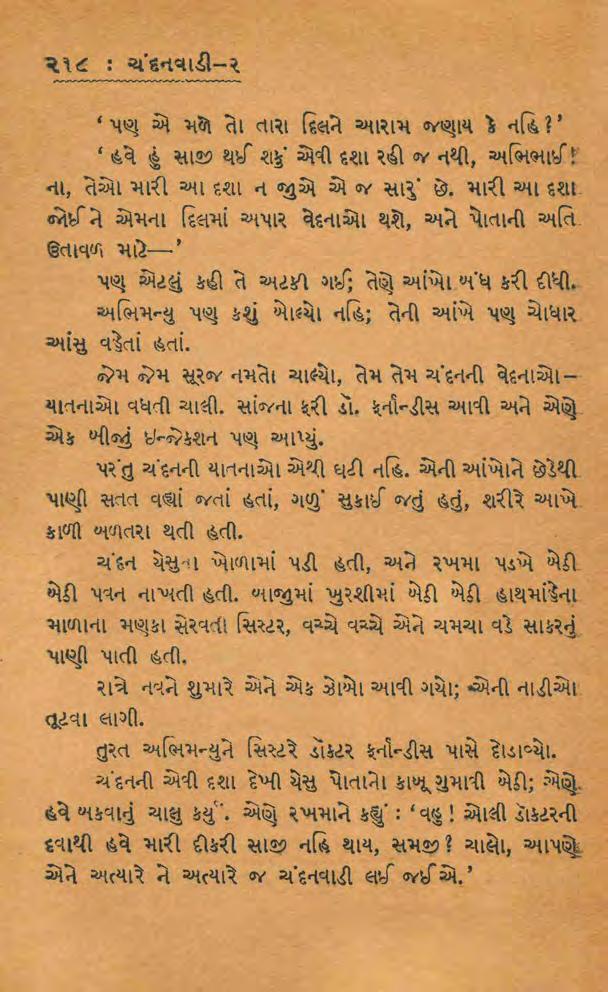 ૨૧૮ : ચંદનવાડી–૨
‘ પણ એ મળે તો તારા દિલને આરામ જણાય કે નહિ ? ’
‘ હવે હું સાજી થઈ શકું એવી દશા રહી જ નથી, અભિભાઈ !
ના, તેઓ મારી આ દશા ન જુએ એ જ સારું છે. મારી આ દશા
જોઈ ને એમના દિલમાં અપાર વેદનાઓ થશે, અને પોતાની અતિ
ઉતાવળ માટે—’
પણ એટલું કહી તે અટકી ગઈ; તેણે આંખો બંધ કરી દીધી.
અભિમન્યુ પણ કશું બોલ્યો નહિ; તેની આંખે પણ ચોધાર
આંસુ વહેતાં હતાં.
જેમ જેમ સૂરજ નમતો ચાલ્યો, તેમ તેમ ચંદનની વેદનાઓ–
યાતનાઓ વધતી ચાલી. સાંજના ફરી ડૉ. ફર્નાન્ડીસ આવી અને એણે
એક બીજું ઇન્જેકશન પણ આપ્યું.
પરંતુ ચંદનની યાતનાઓ એથી ઘટી નહિ. એની આંખોને છેડેથી
પાણી સતત વહ્યાં જતાં હતાં, ગળું સુકાઈ જતું હતું, શરીરે આખે
કાળી બળતરા થતી હતી.
ચંદન યેસુના ખોળામાં પડી હતી, અને રખમા પડખે બેઠી
બેઠી પવન નાખતી હતી. બાજુમાં ખુરશીમાં બેઠી બેઠી હાથમાંહેના
માળાના મણકા સેરવતી સિસ્ટર, વચ્ચે વચ્ચે એને ચમચા વડે સાકરનું
પાણી પાતી હતી.
રાત્રે નવને શુમારે એને એક ઝોબો આવી ગયો; એની નાડીઓ
તૂટવા લાગી.
તુરત અભિમન્યુને સિસ્ટરે ડૉક્ટર ફર્નાન્ડીસ પાસે દોડાવ્યો.
ચંદનની એવી દશા દેખી યેસુ પોતાનો કાબૂ ગુમાવી બેઠી; એણે
હવે બકવાનું ચાલુ કર્યું. એણે રખમાને કહ્યું : ‘વહુ ! ઓલી ડૉક્ટરની
દવાથી હવે મારી દીકરી સાજી નહિ થાય, સમજી ? ચાલો, આપણે
એને અત્યારે ને અત્યારે જ ચંદનવાડી લઈ જઈએ.’